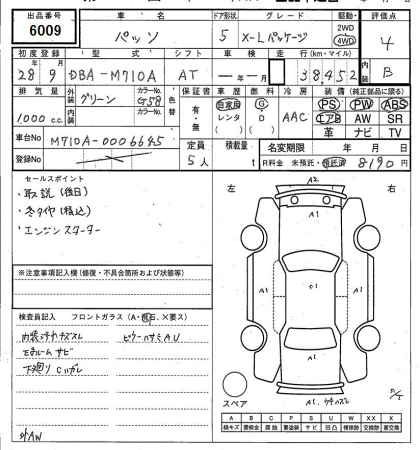 出品番号 車名 ドア形状 グレード 駆動 評価点
6009 パッソ 5 X-Lパッケージ 2WD 4WD 4
初度登録 型式 シフト 車検 走行(km・マイル) 内装
28年 9月 DBA-M710A AT 年 月 38,452 B
排気量 外装 グリーン カラーNo. G58 色替 保証書 車歴 燃料 冷房 装備(純正部品に限る)
1,000 c.c. 内装 カラーNo. 有・無 自家用 レンタ G D AAC PS PW ABS
エアB AW SR
革 ナビ TV
車台No M710A-0006645 定員 5人 積載量 t 名変期限 年 月 日
登録No R料金 未預託・預託済 8190円
セールスポイント
・取説(後日)
・冬タイヤ(積込)
・エンジンスターター
※注意事項記入欄(修復・不具合箇所および状態等)
検査員記入 フロントガラス(A・飛石、X要ス)
内装汚れキズスレ
下廻りCハガレ
左 右
A2
A1
A1
A1
A1
スペア
A B C P S U W XX X
線キズ 要板金 腐蝕 要塗装 サビ 凹凸 補修跡 交換跡 要交換